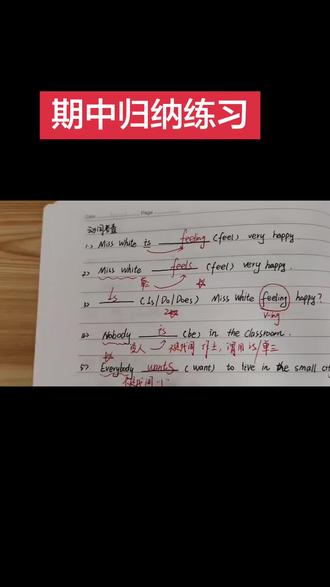 期中归纳练习
Date Page
动词考查
1) Miss White is feeling (feel) very happy.
2) Miss White feels (feel) very happy.
3) Is (Is/Do/Does) Miss White feeling happy?
V-ing
4) Nobody is (be) in the classroom.
不定代词 作主, 谓用 is/单三
5) Everybody wants (want) to live in the small